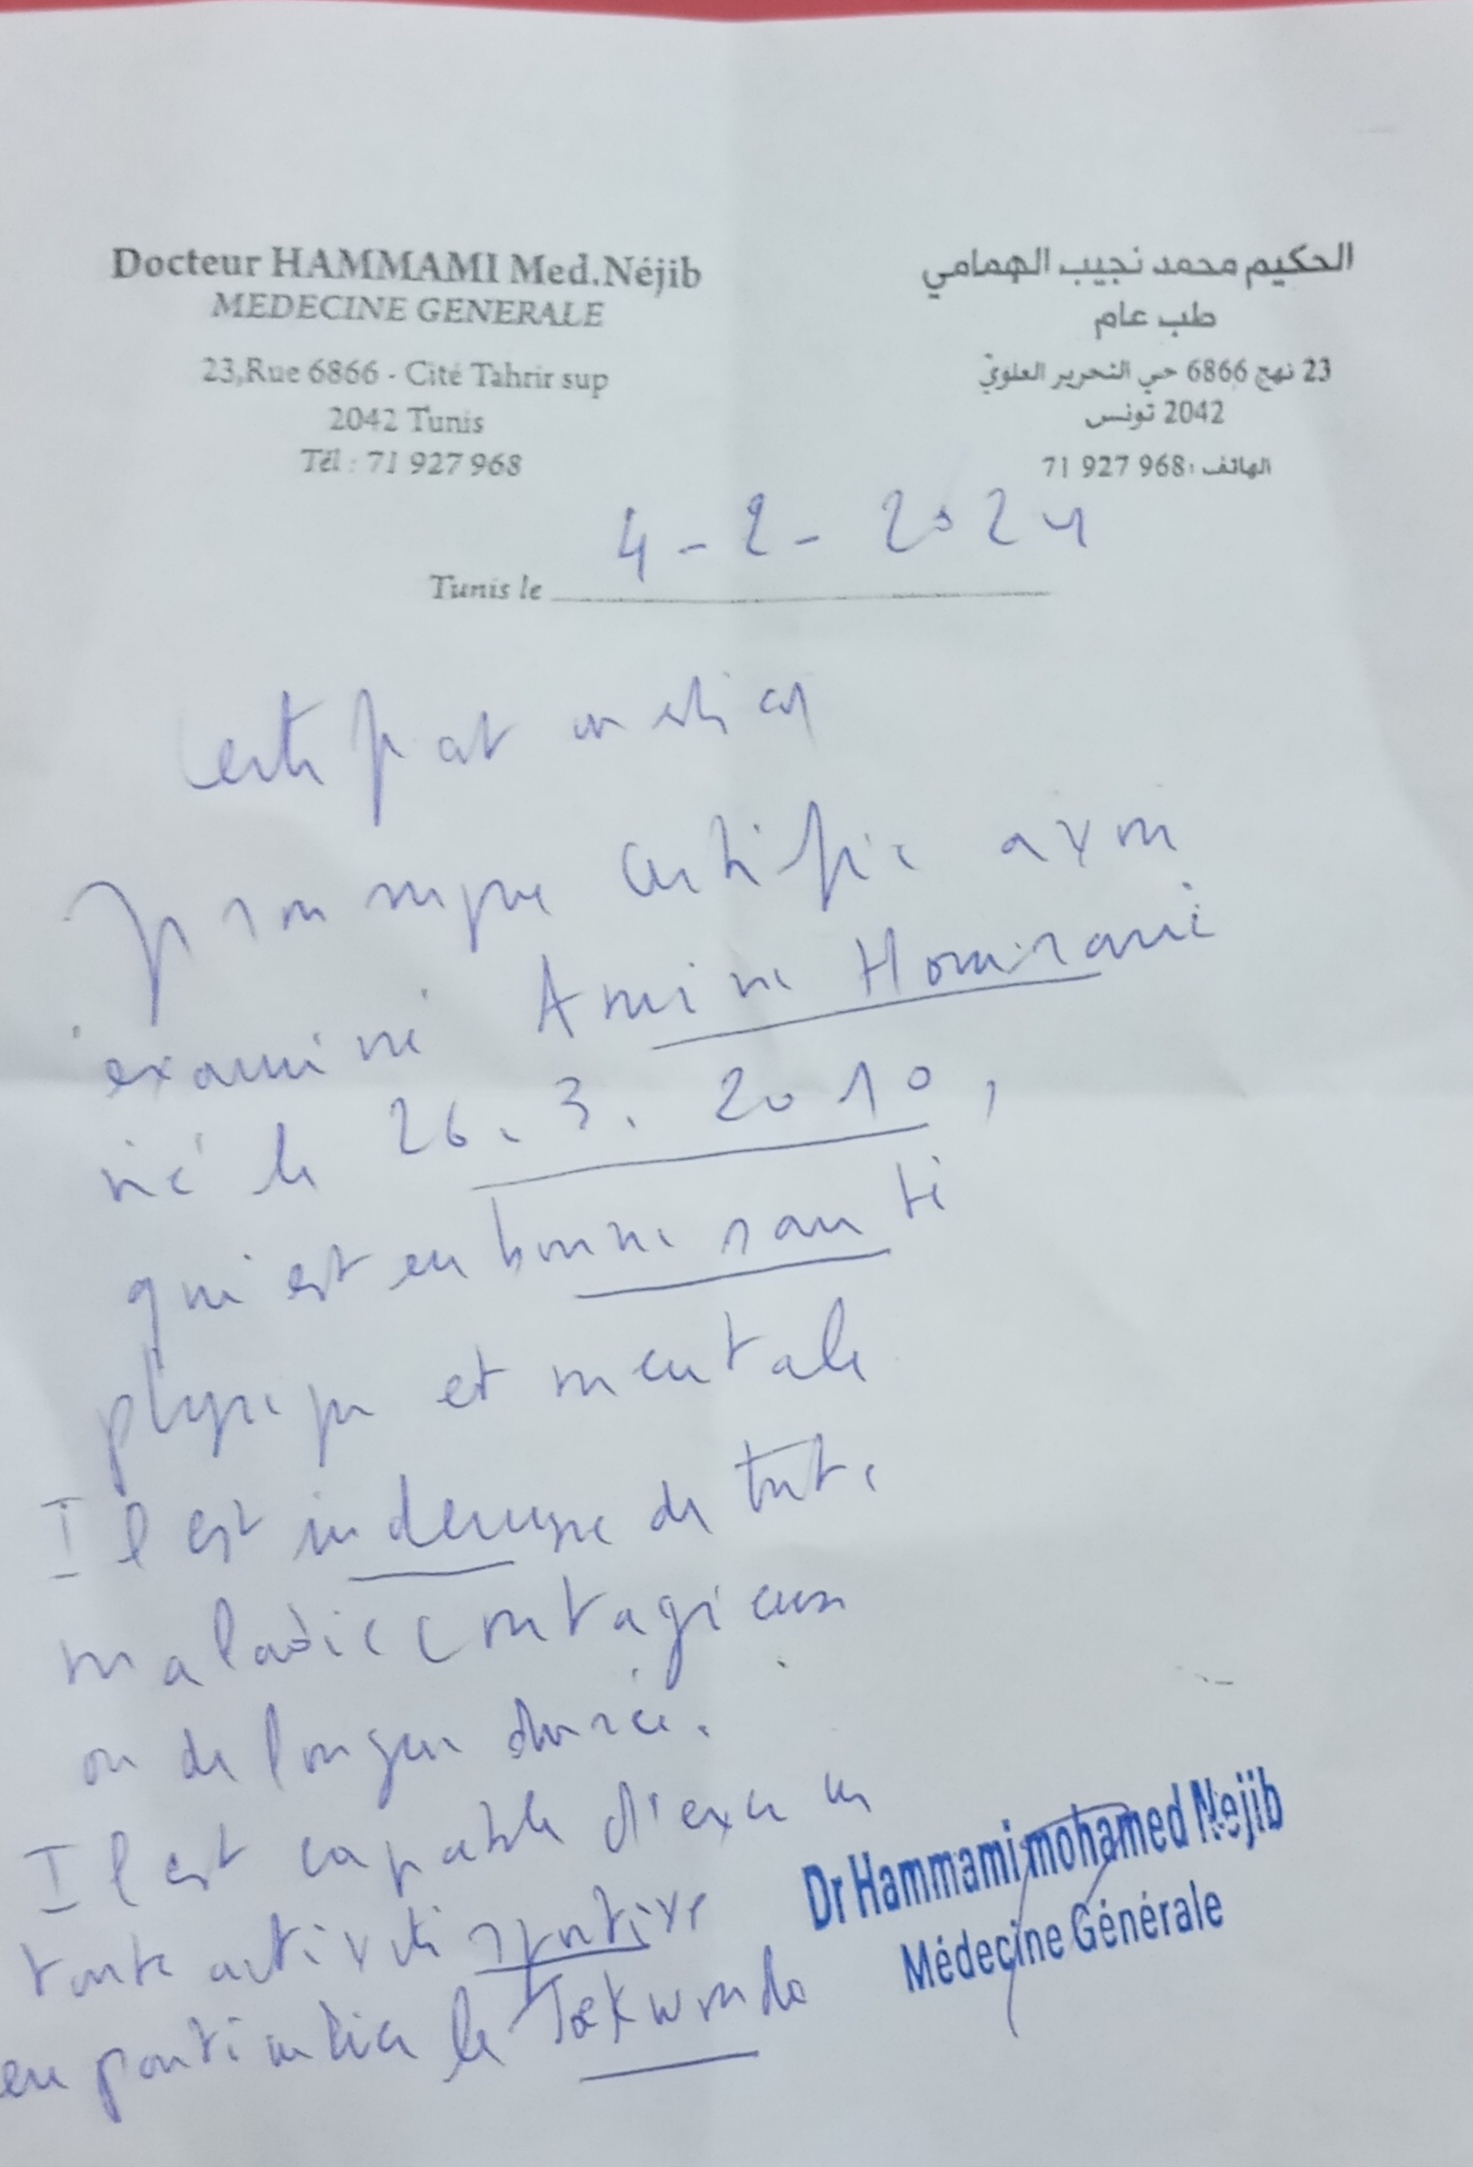 Docteur HAMMAMI Med.Néjib
MEDECINE GENERALE
23,Rue 6866 - Cité Tahrir sup
2042 Tunis
Tél : 71 927 968
الحكيم محمد نجيب الهمامي
طب عام
23 نهج 6866 حي التحرير العلويّ
2042 تونس
الهاتف : 71 927 968
Tunis le 4-2-2024
Certificat médical
Je soussigné certifie avoir
examiné Amine
né le 26.3.2010,
qui est en bonne santé
physique et mentale
Il est indemne de toute
maladie contagieuse
ou de longue durée.
Il est capable d'exercer
toute activité sportive
en particulier le Taekwondo
Dr Hammami mohamed Nejib
Médecine Générale